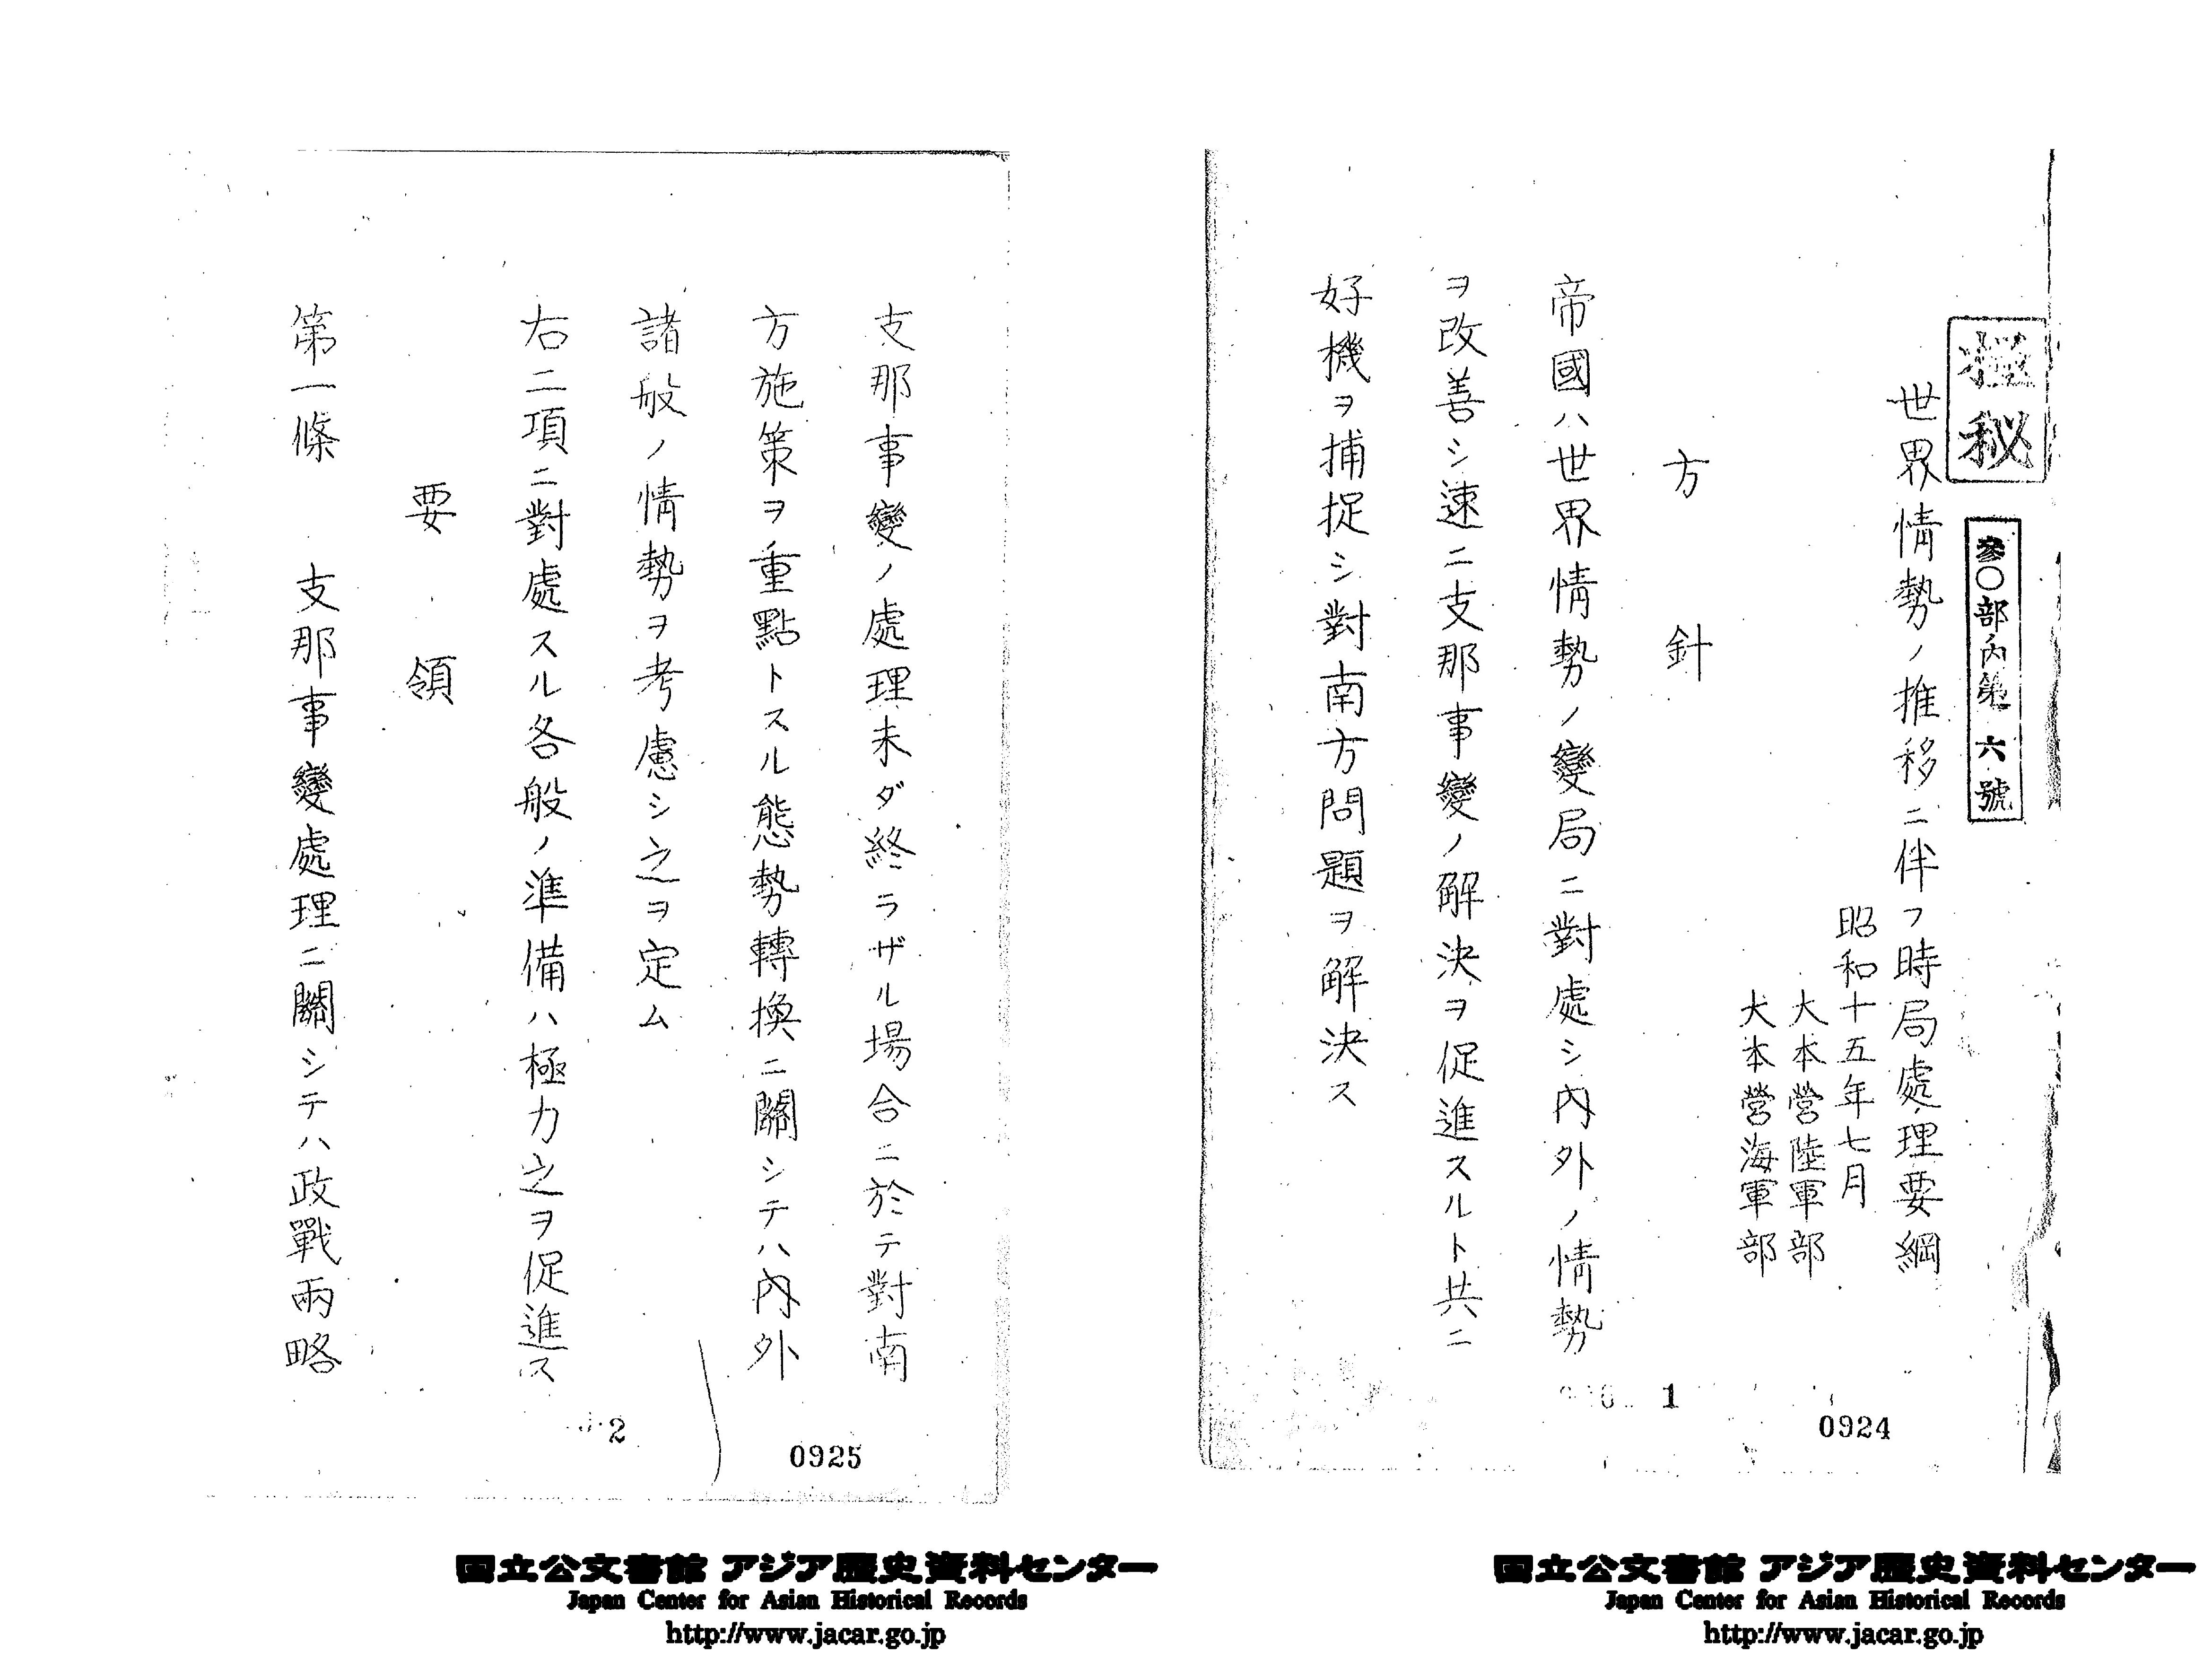 極秘
參〇部內第六號
世界情勢ノ推移ニ伴フ時局處理要綱
昭和十五年七月
大本營陸軍部
大本營海軍部
方針
帝國ハ世界情勢ノ變局ニ對處シ內外ノ情勢
ヲ改善シ速ニ支那事變ノ解決ヲ促進スルト共ニ
好機ヲ捕捉シ對南方問題ヲ解決ス
1
0924
支那事變ノ處理未ダ終ラザル場合ニ於テ對南
方施策ヲ重點トスル態勢轉換ニ關シテハ內外
諸般ノ情勢ヲ考慮シ之ヲ定ム
右二項ニ對處スル各般ノ準備ハ極力之ヲ促進ス
要領
第一條 支那事變處理ニ關シテハ政戰兩略
2
0925
国立公文書館 アジア歴史資料センター
Japan Center for Asian Historical Records
http://www.jacar.go.jp
国立公文書館 アジア歴史資料センター
Japan Center for Asian Historical Records
http://www.jacar.go.jp